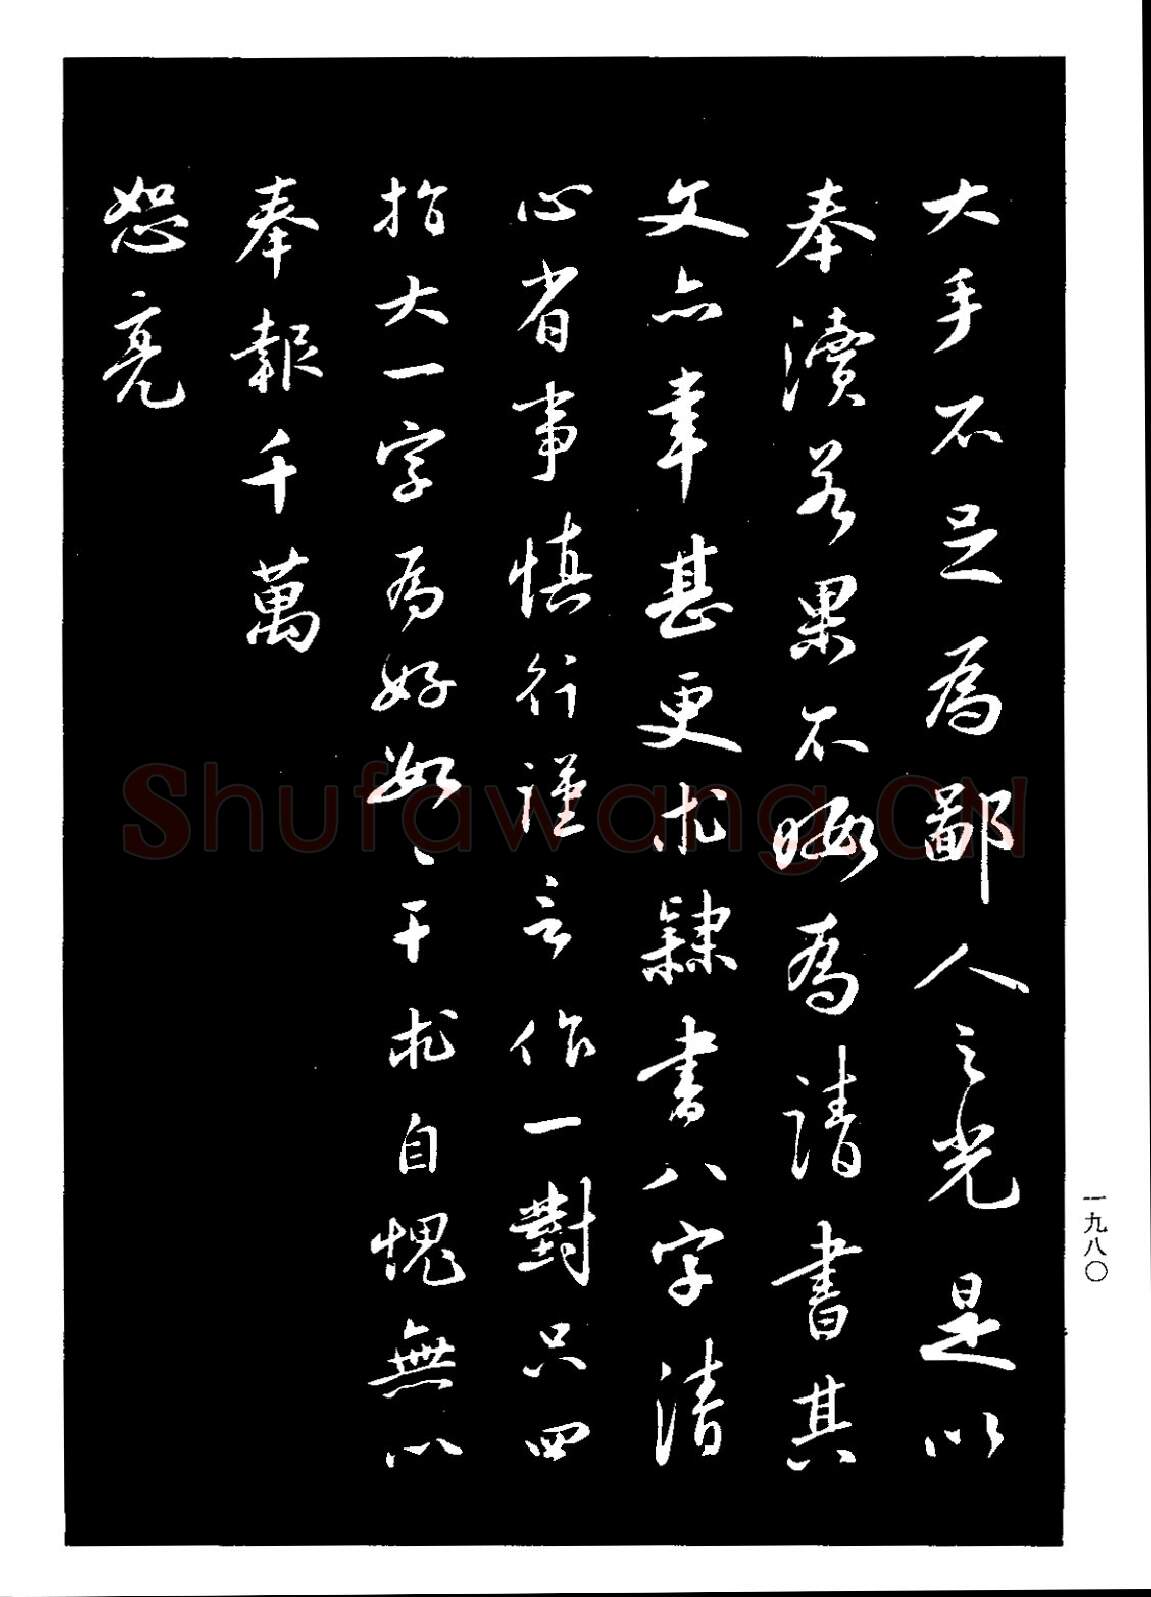 大手不足為鄙人之光是以
奉瀆若果不吝為請書其
文亦幸甚更求隸書八字清
心省事慎行謹言作一對只四
指大一字為好如〻干求自愧無以
奉報千萬
恕亮
一九八〇
Shufawang.CN